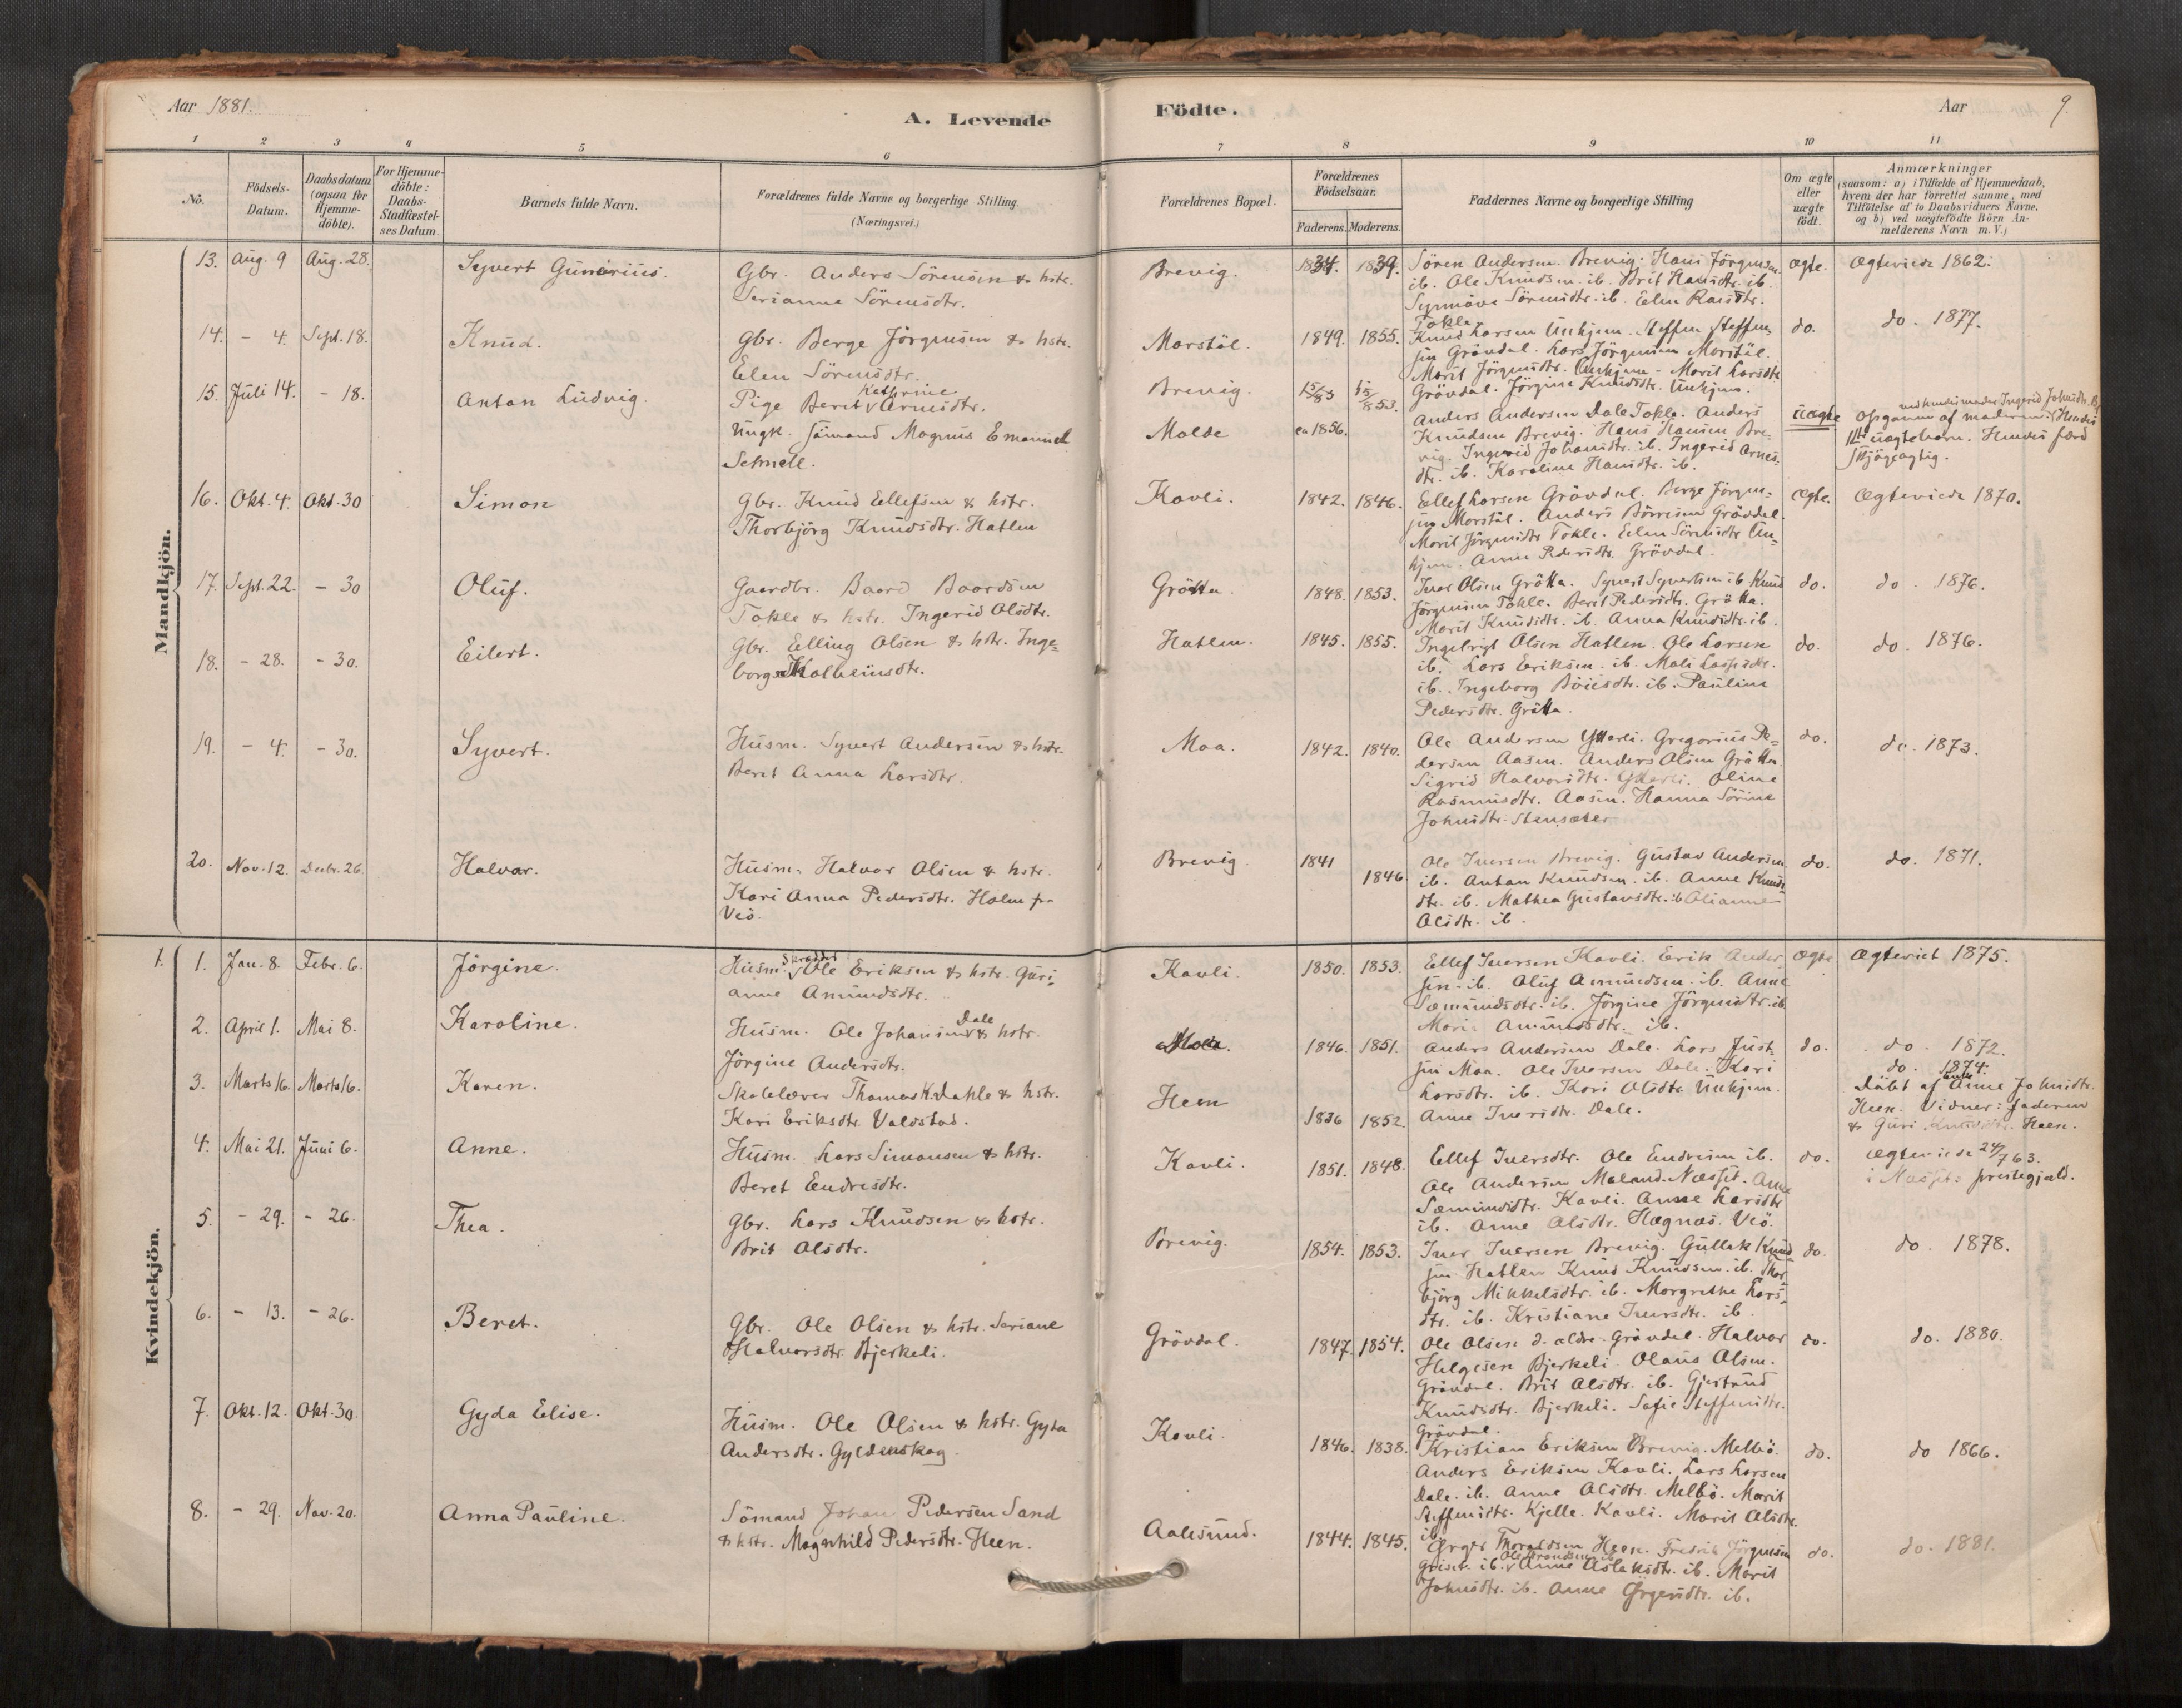 Aar 1881.
A. Levende
Födte.
Aar
9.
1 2 3 4 5 6 7 8 9 10 11
No.
Födsels-Datum.
Daabsdatum (ogsaa for Hjemme-döbte).
For Hjemme-döbte: Daabs-Stadfæstel-ses Datum.
Barnets fulde Navn.
Forældrenes fulde Navne og borgerlige Stilling. (Næringsvei.)
Forældrenes Bopæl.
Forældrenes Födselsaar.
Faderens. Moderens.
Faddernes Navne og borgerlige Stilling
Om ægte eller uægte födt.
Anmærkninger
(saasom: a) i Tilfælde af Hjemmedaab,
hvem der har forrettet samme, med
Tilföielse af to Daabsvidners Navne.
og b) ved uægtefödte Börn An-
melderens Navn m. V.)
Mandkjön.
13. Aug. 9 Aug. 28. Syvert Gunerius. Gbr. Anders Sörensen & hstr.
Serianne Sörensdtr.
Brevig. 1834. 1839. Sören Andersen. Brevig. Hans Jörgensen
ib. Ole Knudsen. ib. Brit Hansdtr. ib.
Synnöve Sörensdtr. ib. Elen Rasdtr.
Tokle.
ægte. Ægteviede 1862.
14. - 4. Sept. 18. Knud. Gbr. Berge Jörgensen & hstr.
Elen Sörensdtr.
Marstöl. 1849. 1855. Knud Larsen Unhjem. Steffen Steffen-
sen Grövdal. Lars Jörgensen Marstöl.
Marit Jörgensdtr. Unhjem - Marit Larsdtr
Grövdal. Jörgine Knudsdtr. Unhjem.
do. do. 1877.
15. Juli 14. - 18. Anton Ludvig. Pige Beret Kathrine Arnesdtr.
Ungk. Sömand Magnus Emanuel
Schnell.
Brevig.
Molde ca 1856.
Anders Andersen Dale Tokle. Anders
Knudsen Brevig. Hans Hansen Bre-
vig. Ingerid Johansdtr. ib. Ingerid Arnes-
dtr. ib. Karoline Hansdtr. ib.
uægte Opgivern af moderen. Hendes
1ste uægtebarn. Hendes færd
skjögeagtig.
16. Okt. 4. Okt. 30 Simon Gbr. Knud Ellefsen & hstr.
Thorbjörg Knudsdtr. Hatlen
Kavli. 1842. 1846. Ellef Larsen Grövdal. Berge Jörgen-
sen Marstöl. Anders Börresen Grövdal.
Marit Jörgensdtr Tokle. Elen Sörensdtr Un-
hjem. Anne Pedersdtr. Grövdal.
ægte. Ægteviede 1870.
17. Sept. 22. - 30 Oluf. Gaardbr. Baard Baardsen
Tokle & hstr. Ingerid Olsdtr.
Grötta. 1848. 1853. Iver Olsen Grötta. Syvert Syvertsen ib. Knud
Jörgensen Tokle. Berit Pedersdtr. Grötta.
Marit Knudsdtr. ib. Anna Knudsdtr. ib.
do. do. 1876.
18. - 28. - 30. Eilert. Gbr. Elling Olsen & hstr. Inge-
borg Kolbeinsdtr.
Hatlen. 1845. 1855. Ingebrigt Olsen Hatlen. Ole Larsen
ib. Lars Eriksen. ib. Mali Lassesdtr.
ib. Ingeborg Böiesdtr. ib. Pauline
Pedersdtr. Grötta.
do. do. 1876.
19. - 4. - 30. Syvert. Husm. Syvert Andersen & hstr.
Beret Anna Larsdtr.
Moa. 1842. 1840. Ole Andersen Ytterli. Gregorius Pe-
dersen Aasen. Anders Olsen Grötta.
Sigrid Halvorsdtr. Ytterli. Oline
Rasmusdtr. Aasen. Hanna Sörine
Johnsdtr. Stensæter
do. do. 1873.
20. Nov. 12. Decbr. 26. Halvar. Husm. Halvor Olsen & hstr.
Kari Anna Pedersdtr. Holm fra
Veö.
Brevig. 1841 1846. Ole Iversen Brevig. Gustav Andersen
ib. Antan Knudsen. ib. Anne Knuds-
dtr. ib. Mathea Gustavsdtr. ib Olianne
Olsdtr. ib.
do. do. 1871.
Kvindekjön.
1. 1. Jan. 8. Febr. 6. Jörgine. Husm. Skrædder Ole Eriksen & hstr. Guri-
anne Amundsdtr.
Kavli. 1850. 1853. Ellef Iversen Kavli. Erik Ander-
sen. ib. Oluf Amundsen. ib. Anne
Sæmundsdtr. ib. Jörgine Jörgensdtr. ib.
Marie Amundsdtr. ib.
Ægte Ægteviet 1875.
2. April 1. Mai 8. Karoline. Husm. Ole Johansen Dale & hstr.
Jörgine Andersdtr.
Moa. 1846. 1851. Anders Andersen Dale. Lars Just-
sen Moa. Ole Iversen Dale. Kari
Larsdtr. ib. Kari Olsdtr Unhjem.
Anne Iversdtr. Dale.
do. do. 1872.
3. Marts 16. Marts 16. Karen. Skolelærer Thomas K. Dahle & hstr.
Kari Eriksdtr Valdstad.
Heen 1836 1852.
do. 1874.
döbt af enke Anne Johnsdtr.
Heen. Vidner: faderen
& Guri Knudsdtr. Heen.
4. Mai 21. Juni 6. Anne. Husm. Lars Simonsen & hstr.
Beret Endresdtr.
Kavli. 1851. 1848. Ellef Iversdtr. Ole Endresen ib.
Ole Andersen Meland. Næsset. Anne
Sæmundsdtr. Kavli. Anne Larsdtr
ib. Anne Olsdtr. Hægnæs. Veö.
do. Ægteviede 24/7 63.
i Næssets prestegjæld.
5. - 29. - 26. Thea. Gbr. Lars Knudsen & hstr.
Brit Olsdtr.
Brevig. 1854. 1853. Iver Iversen Brevig. Gullak Knud-
sen Hatlen Knud Knudsen. ib. Thor-
björg Mikkelsdtr. ib. Margrethe Lars-
dtr. ib. Kristiane Iversdtr. ib.
do. do. 1878.
6. - 13. - 26. Beret. Gbr. Ole Olsen & hstr. Seriane
Halvorsdtr Bjerkeli.
Grövdal. 1847. 1854. Ole Olsen d. ældre. Grövdal. Halvor
Helgesen Bjerkeli. Olaus Olsen.
Grövdal. Brit Olsdtr. ib. Gjertrud
Knudsdtr. Bjerkeli. Sofie Steffensdtr.
Grövdal.
do. do. 1880.
7. Okt. 12. Okt. 30. Gyda Elise. Husm. Ole Olsen & hstr. Gyda
Andersdtr. Gyldenskog.
Kavli. 1846. 1838. Kristian Eriksen Brevig. Melbö.
Anders Eriksen Kavli. Lars Larsen
Dale. ib. Anne Olsdtr. Melbö. Marit
Steffensdtr. Kjelle. Kavli. Marit Olsdtr.
ib.
do. do 1866.
8. - 29. Nov. 20. Anna Pauline. Sömand Johan Pedersen Sand
& hstr. Magnhild Pedersdtr. Heen.
Aalesund. 1844. 1845. Örger Thoraldsen Heen. Fredrik Jörgensen
Griset. ib. Anne Aslaksdtr. ib. Marit
Johnsdtr. ib. Anne Örgersdtr. ib.
do. do. 1881.